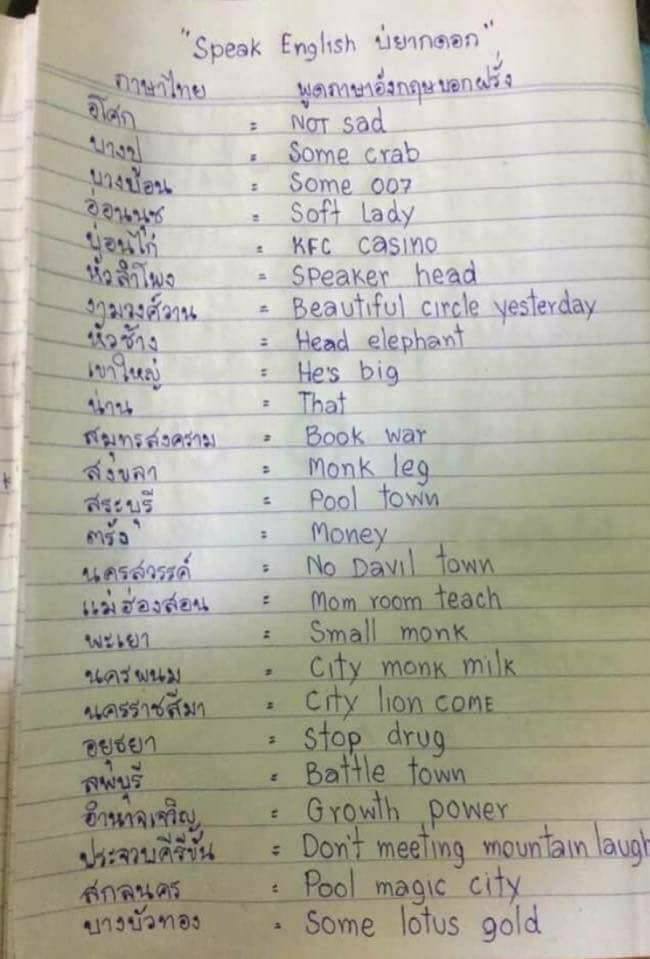 "Speak English บ่ยากดอก"
ภาษาไทย พูดภาษาอังกฤษบอกฝรั่ง
อโศก = NOT sad
บางปู = Some crab
บางบ่อน = Some 007
อ่อนนุช = Soft Lady
บ่อนไก่ = KFC casino
หัวลำโพง = Speaker head
งามวงศ์วาน = Beautiful circle yesterday
หัวช้าง = Head elephant
เขาใหญ่ = He's big
น่าน = That
สมุทรสงคราม = Book war
สงขลา = Monk leg
สระบุรี = Pool town
ตรัง = Money
นครสวรรค์ = No Davil town
แม่ฮ่องสอน = Mom room teach
พะเยา = Small monk
นครพนม = City monk milk
นครราชสีมา = City lion COME
อยุธยา = Stop drug
ลพบุรี = Battle town
อำนาจเจริญ = Growth power
ประจวบคีรีขัน = Don't meeting mountain laugh
สกลนคร = Pool magic city
บางบัวทอง = Some lotus gold